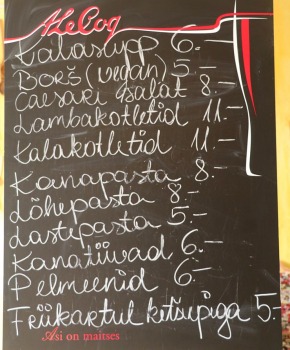 ALeCoq
Kalasupp 6.-
Borš (vegan) 5.-
Caesari salat 8.-
Lambakotletid 11.-
Kalakotletid 11.-
Kanapasta 8.-
Lõhepasta 8.-
Lastepasta 5.-
Kanatiivad 6.-
Pelmeenid 6.-
Friikartul ketsupiga 5.-
Asi on maitses